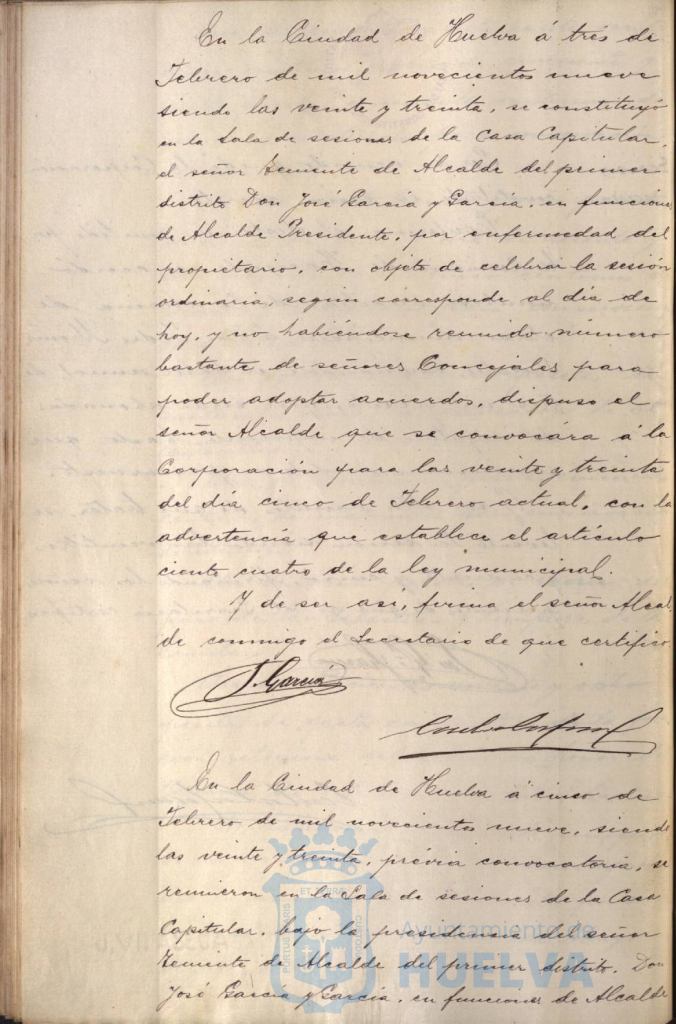 En la Ciudad de Huelva á tres de
Febrero de mil novecientos nueve
siendo las veinte y treinta, se constituyó
en la Sala de sesiones de la Casa Capitular,
el señor Teniente de Alcalde del primer
distrito Don José García y García, en funciones
de Alcalde Presidente, por enfermedad del
propietario, con objeto de celebrar la sesión
ordinaria, según corresponde al día de
hoy, y no habiéndose reunido número
bastante de señores Concejales para
poder adoptar acuerdos, dispuso el
señor Alcalde que se convocára á la
Corporación para las veinte y treinta
del día cinco de Febrero actual, con la
advertencia que establece el artículo
ciento cuatro de la ley municipal.
Y de ser así, firma el señor Alcal-
de conmigo el Secretario de que certifico
J. García
En la Ciudad de Huelva á cinco de
Febrero de mil novecientos nueve, siendo
las veinte y treinta, prévia convocatoria, se
reunieron en la Sala de sesiones de la Casa
Capitular, bajo la presidencia del señor
Teniente de Alcalde del primer distrito, Don
José García y García, en funciones de Alcalde
Ayuntamiento de
HUELVA